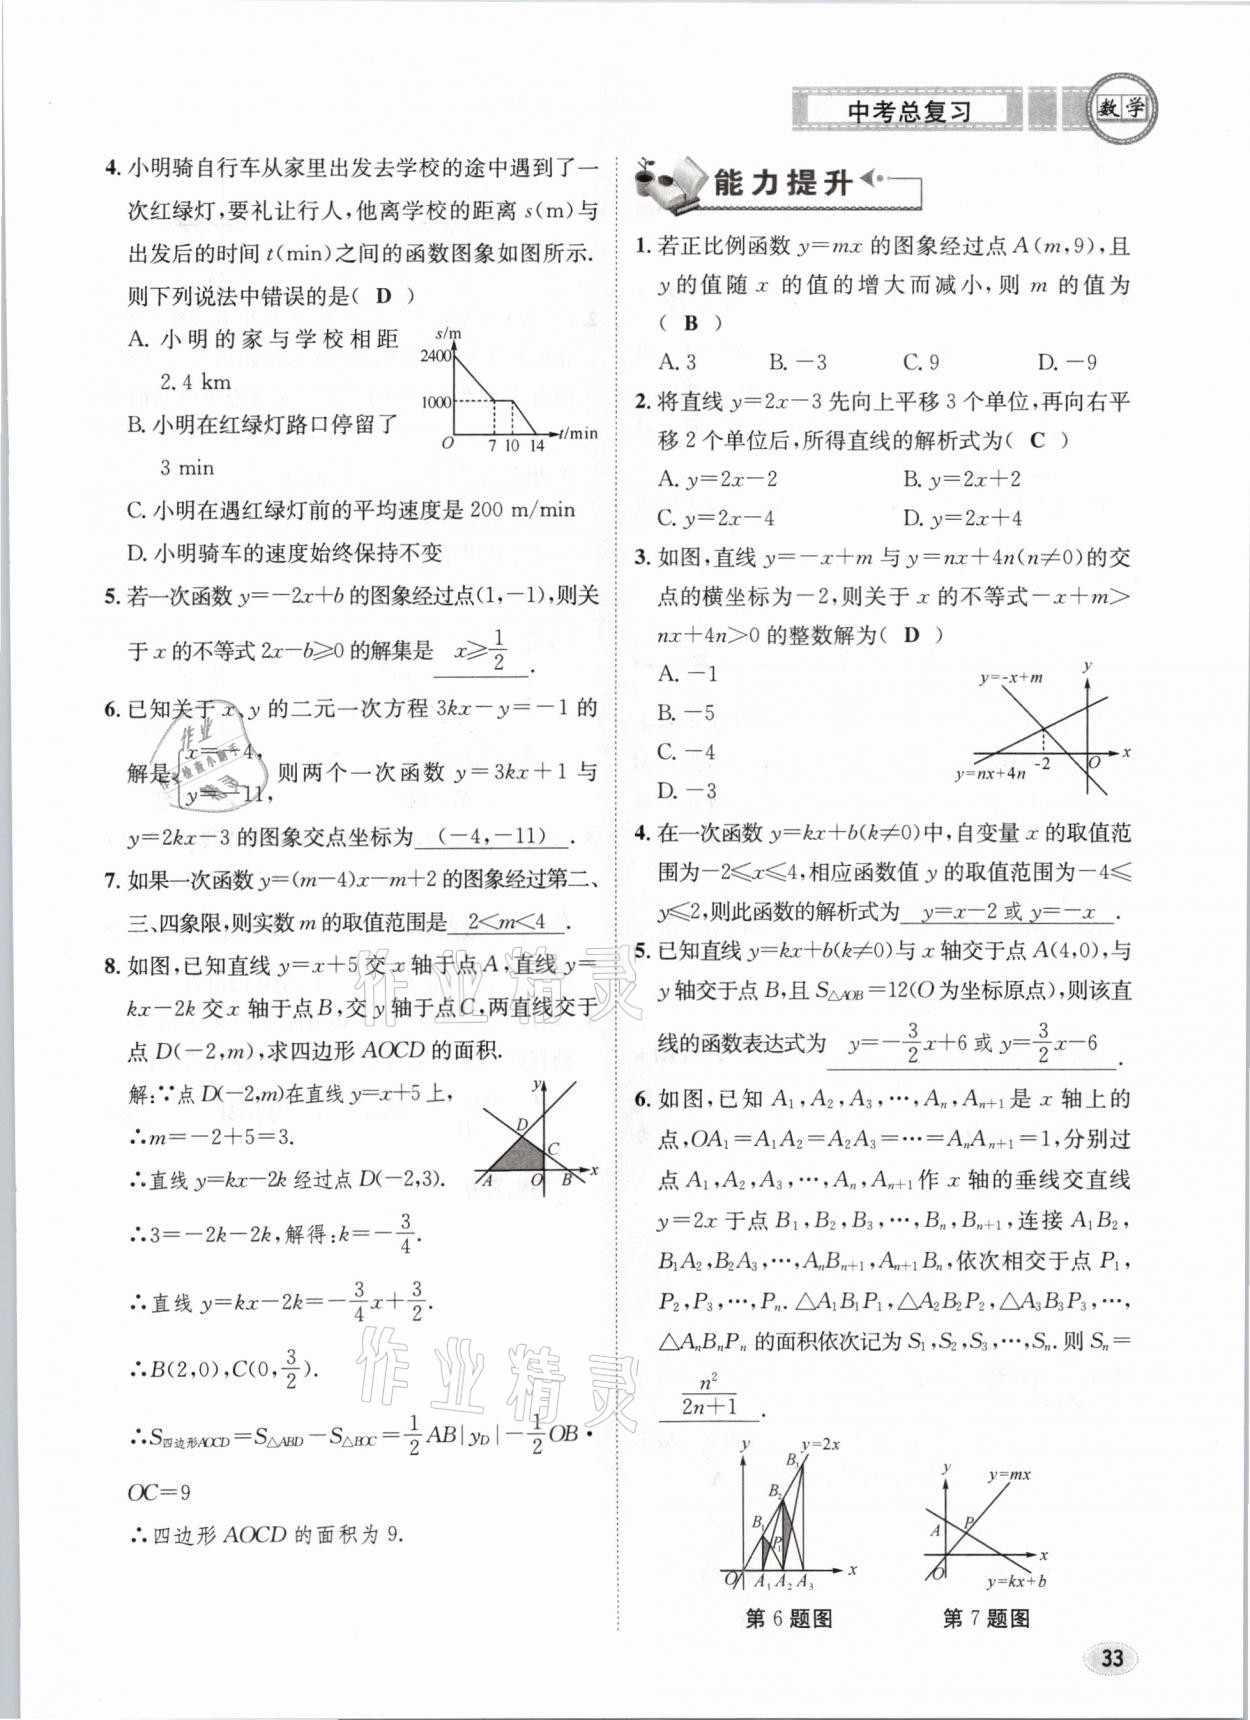 中考总复习
数学
4. 小明骑自行车从家里出发去学校的途中遇到了一
次红绿灯,要礼让行人,他离学校的距离 s(m)与
出发后的时间 t(min)之间的函数图象如图所示.
则下列说法中错误的是( D )
A. 小明的家与学校相距
2.4 km
B. 小明在红绿灯路口停留了
3 min
s/m
2400
1000
O 7 10 14 t/min
C. 小明在遇红绿灯前的平均速度是 200 m/min
D. 小明骑车的速度始终保持不变
5. 若一次函数 y=-2x+b 的图象经过点(1,-1),则关
于 x 的不等式 2x-b≥0 的解集是 x≥1/2 .
6. 已知关于 x、y 的二元一次方程 3kx-y=-1 的
解是{x=-4,
y=-11, 则两个一次函数 y=3kx+1 与
y=2kx-3 的图象交点坐标为 (-4,-11) .
7. 如果一次函数 y=(m-4)x-m+2 的图象经过第二、
三、四象限,则实数 m 的取值范围是 2<m<4 .
8. 如图,已知直线 y=x+5 交 x 轴于点 A,直线 y=
kx-2k 交 x 轴于点 B,交 y 轴于点 C,两直线交于
点 D(-2,m),求四边形 AOCD 的面积.
解:∵点 D(-2,m)在直线 y=x+5 上,
∴m=-2+5=3.
∴直线 y=kx-2k 经过点 D(-2,3).
y
D
C
A O B x
∴3=-2k-2k,解得:k=-3/4.
∴直线 y=kx-2k=-3/4x+3/2.
∴B(2,0),C(0,3/2).
∴S四边形AOCD=S△ABD-S△BOC=1/2AB|yD|-1/2OB·
OC=9
∴四边形 AOCD 的面积为 9.
能力提升
1. 若正比例函数 y=mx 的图象经过点 A(m,9),且
y 的值随 x 的值的增大而减小,则 m 的值为
( B )
A. 3 B. -3 C. 9 D. -9
2. 将直线 y=2x-3 先向上平移 3 个单位,再向右平
移 2 个单位后,所得直线的解析式为( C )
A. y=2x-2 B. y=2x+2
C. y=2x-4 D. y=2x+4
3. 如图,直线 y=-x+m 与 y=nx+4n(n≠0)的交
点的横坐标为-2,则关于 x 的不等式-x+m>
nx+4n>0 的整数解为( D )
A. -1
B. -5
C. -4
D. -3
y
y=-x+m
-2 O x
y=nx+4n
4. 在一次函数 y=kx+b(k≠0)中,自变量 x 的取值范
围为-2≤x≤4,相应函数值 y 的取值范围为-4≤
y≤2,则此函数的解析式为 y=x-2 或 y=-x .
5. 已知直线 y=kx+b(k≠0)与 x 轴交于点 A(4,0),与
y 轴交于点 B,且 S△AOB=12(O 为坐标原点),则该直
线的函数表达式为 y=-3/2x+6 或 y=3/2x-6 .
6. 如图,已知 A₁,A₂,A₃,…,Aₙ,Aₙ₊₁ 是 x 轴上的
点,OA₁=A₁A₂=A₂A₃=…=AₙAₙ₊₁=1,分别过
点 A₁,A₂,A₃,…,Aₙ,Aₙ₊₁ 作 x 轴的垂线交直线
y=2x 于点 B₁,B₂,B₃,…,Bₙ,Bₙ₊₁,连接 A₁B₂,
B₁A₂,B₂A₃,…,AₙBₙ₊₁,Aₙ₊₁Bₙ,依次相交于点 P₁,
P₂,P₃,…,Pₙ. △A₁B₁P₁,△A₂B₂P₂,△A₃B₃P₃,…,
△AₙBₙPₙ 的面积依次记为 S₁,S₂,S₃,…,Sₙ. 则 Sₙ=
n²/(2n+1) .
y y=2x
B₃
B₂
B₁
P₁
O A₁ A₂ A₃ x
第 6 题图
y y=mx
A P
O x
y=kx+b
第 7 题图
33
作业精灵
作业精灵
作业
作业检查小助手